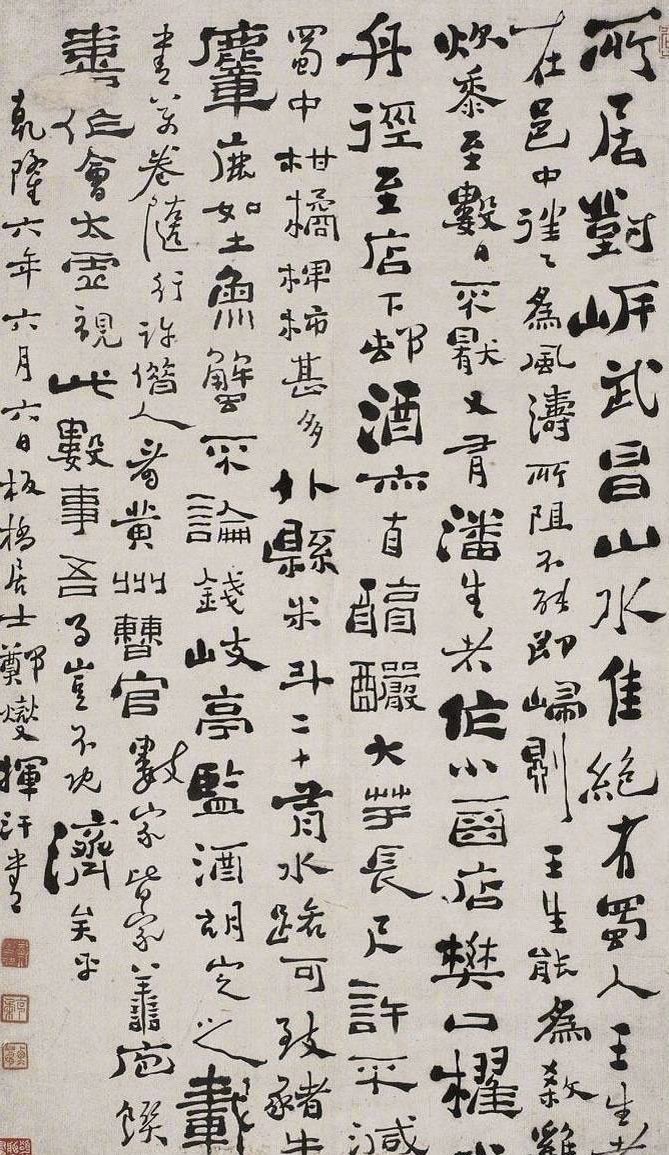 所居對岍武昌山水佳絕有蜀人王生者
在邑中往往為風濤所阻不能即歸則王生能為殺雞
炊黍至數日不厭又有潘生者作小酒店樊口櫂
舟徑至店下邨酒亦自醇釅大芋長尺許不減
蜀中柑橘椑柿甚多外縣米斗二十有水路可致豬牛
麞鹿如土魚蟹不論錢岐亭監酒胡定之載
書萬卷隨行許借人看黃州曹官數家皆家善庖饌
喜作會太虛視此數事吾事豈不既濟矣乎
乾隆六年六月六日板橋居士鄭燮揮汗書